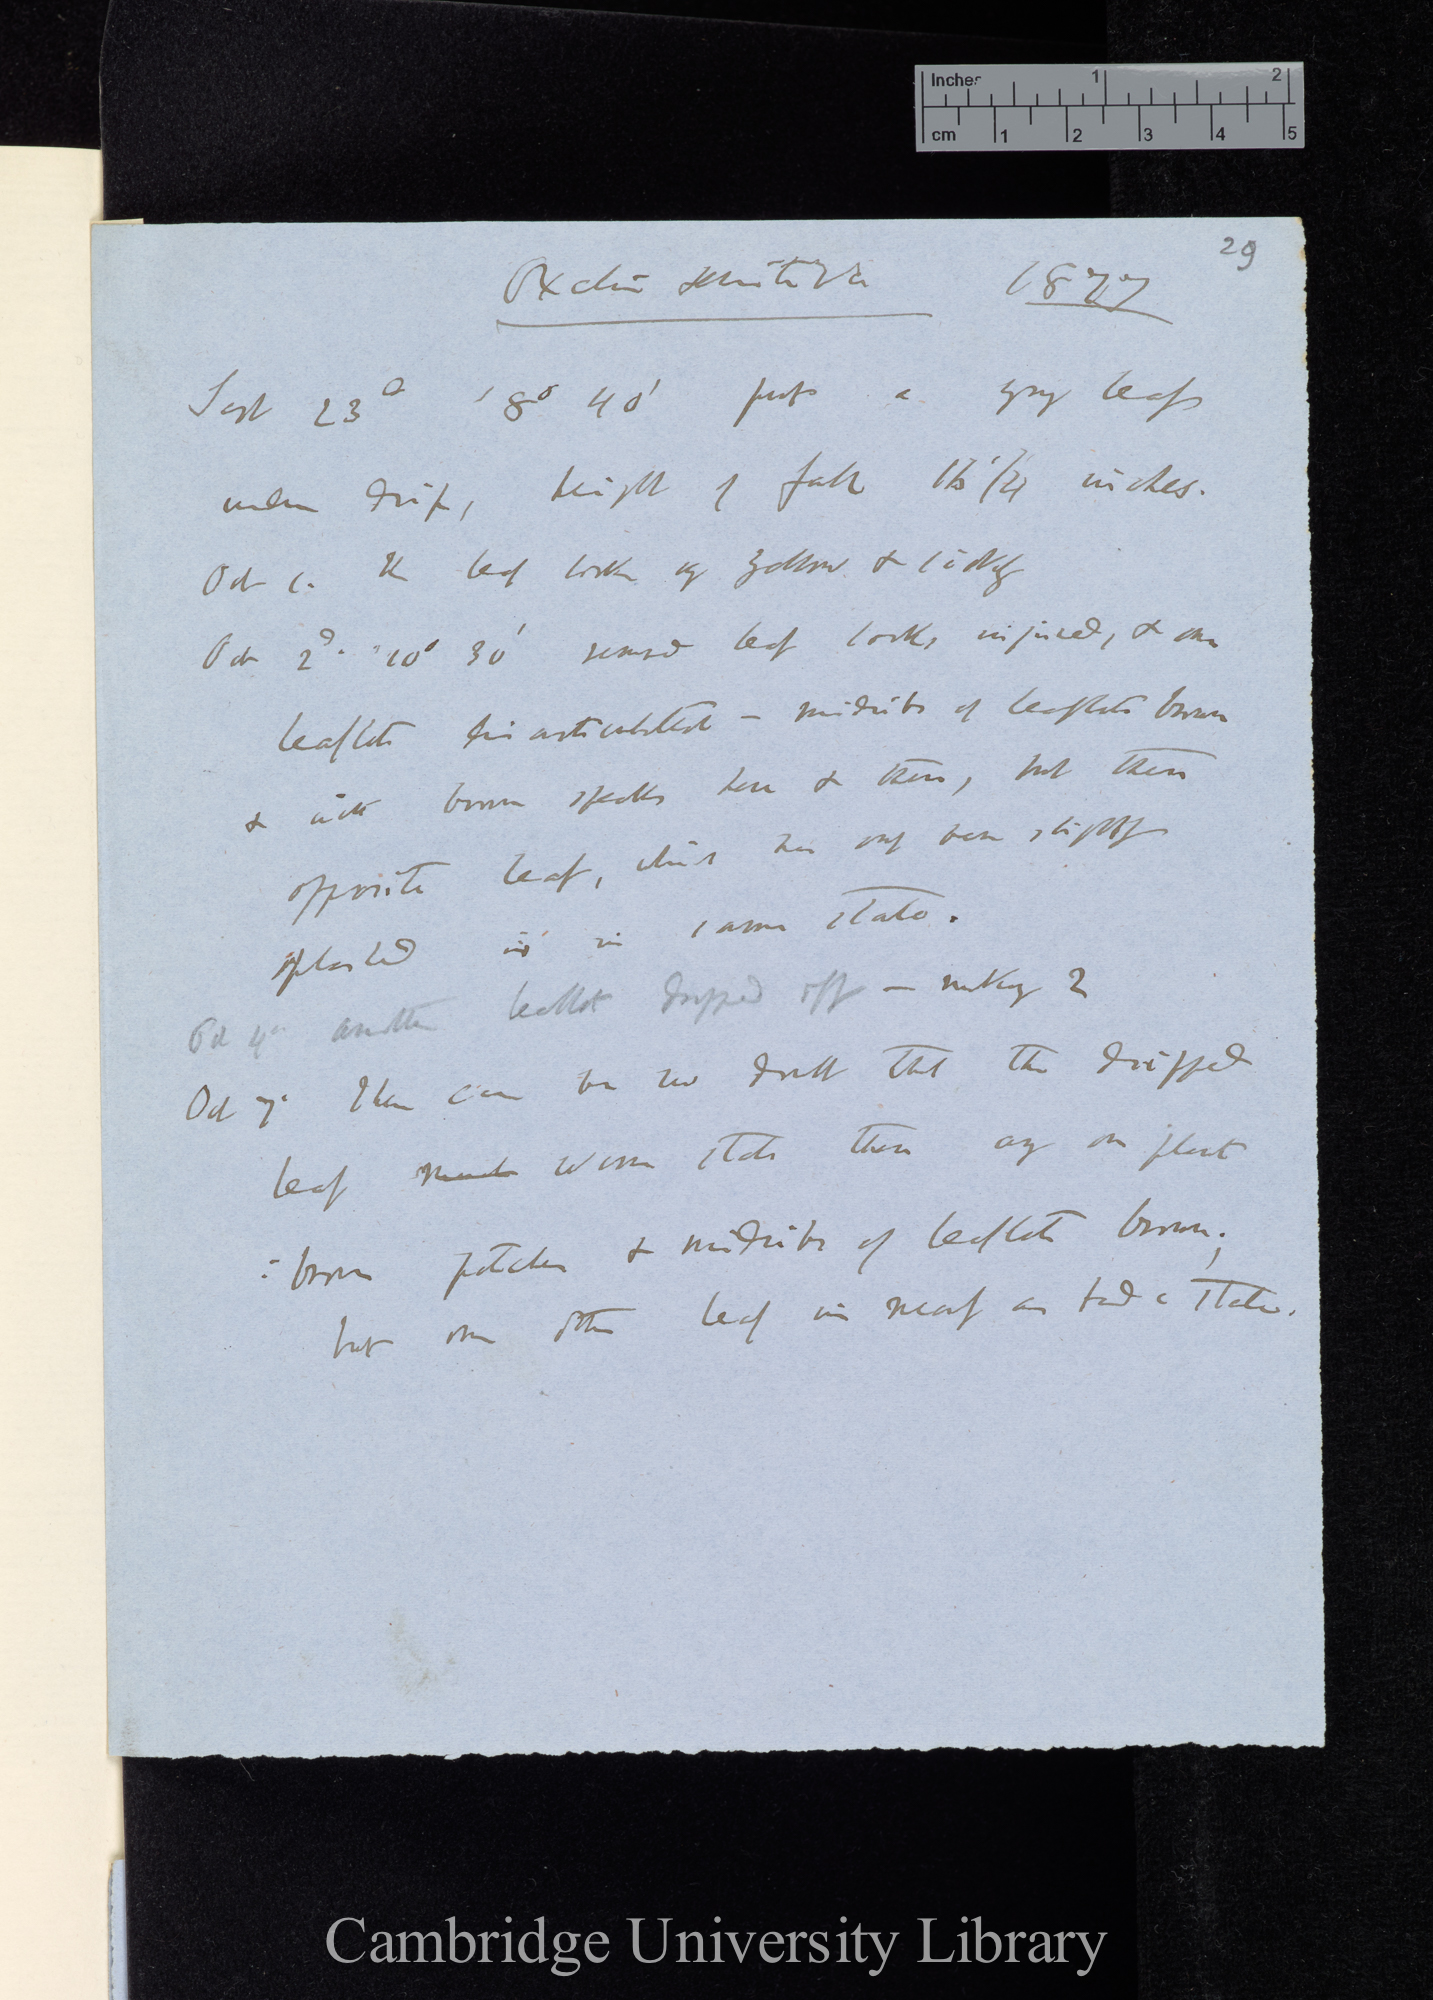 Inches 1 2
cm 1 2 3 4 5
29
Oxalis sensitiva 1877
Sept 23d 8° 40' put a young leaf
under drip, height of fall inches.
Oct 1. The leaf looks yellow & sickly
Oct 2d. 10° 30' leaf looks injured, & one
leaflet disarticulated — midribs of leaflets brown
& with brown specks here & there, but then
opposite leaf, which has only been slightly
splashed is in same state.
Oct 4th another leaflet dropped off — making 2
Oct 7th There can be no doubt that the dripped
leaf much worse state than any on plant
: brown patches & midribs of leaflets brown;
but one other leaf in nearly as bad a state.
Cambridge University Library